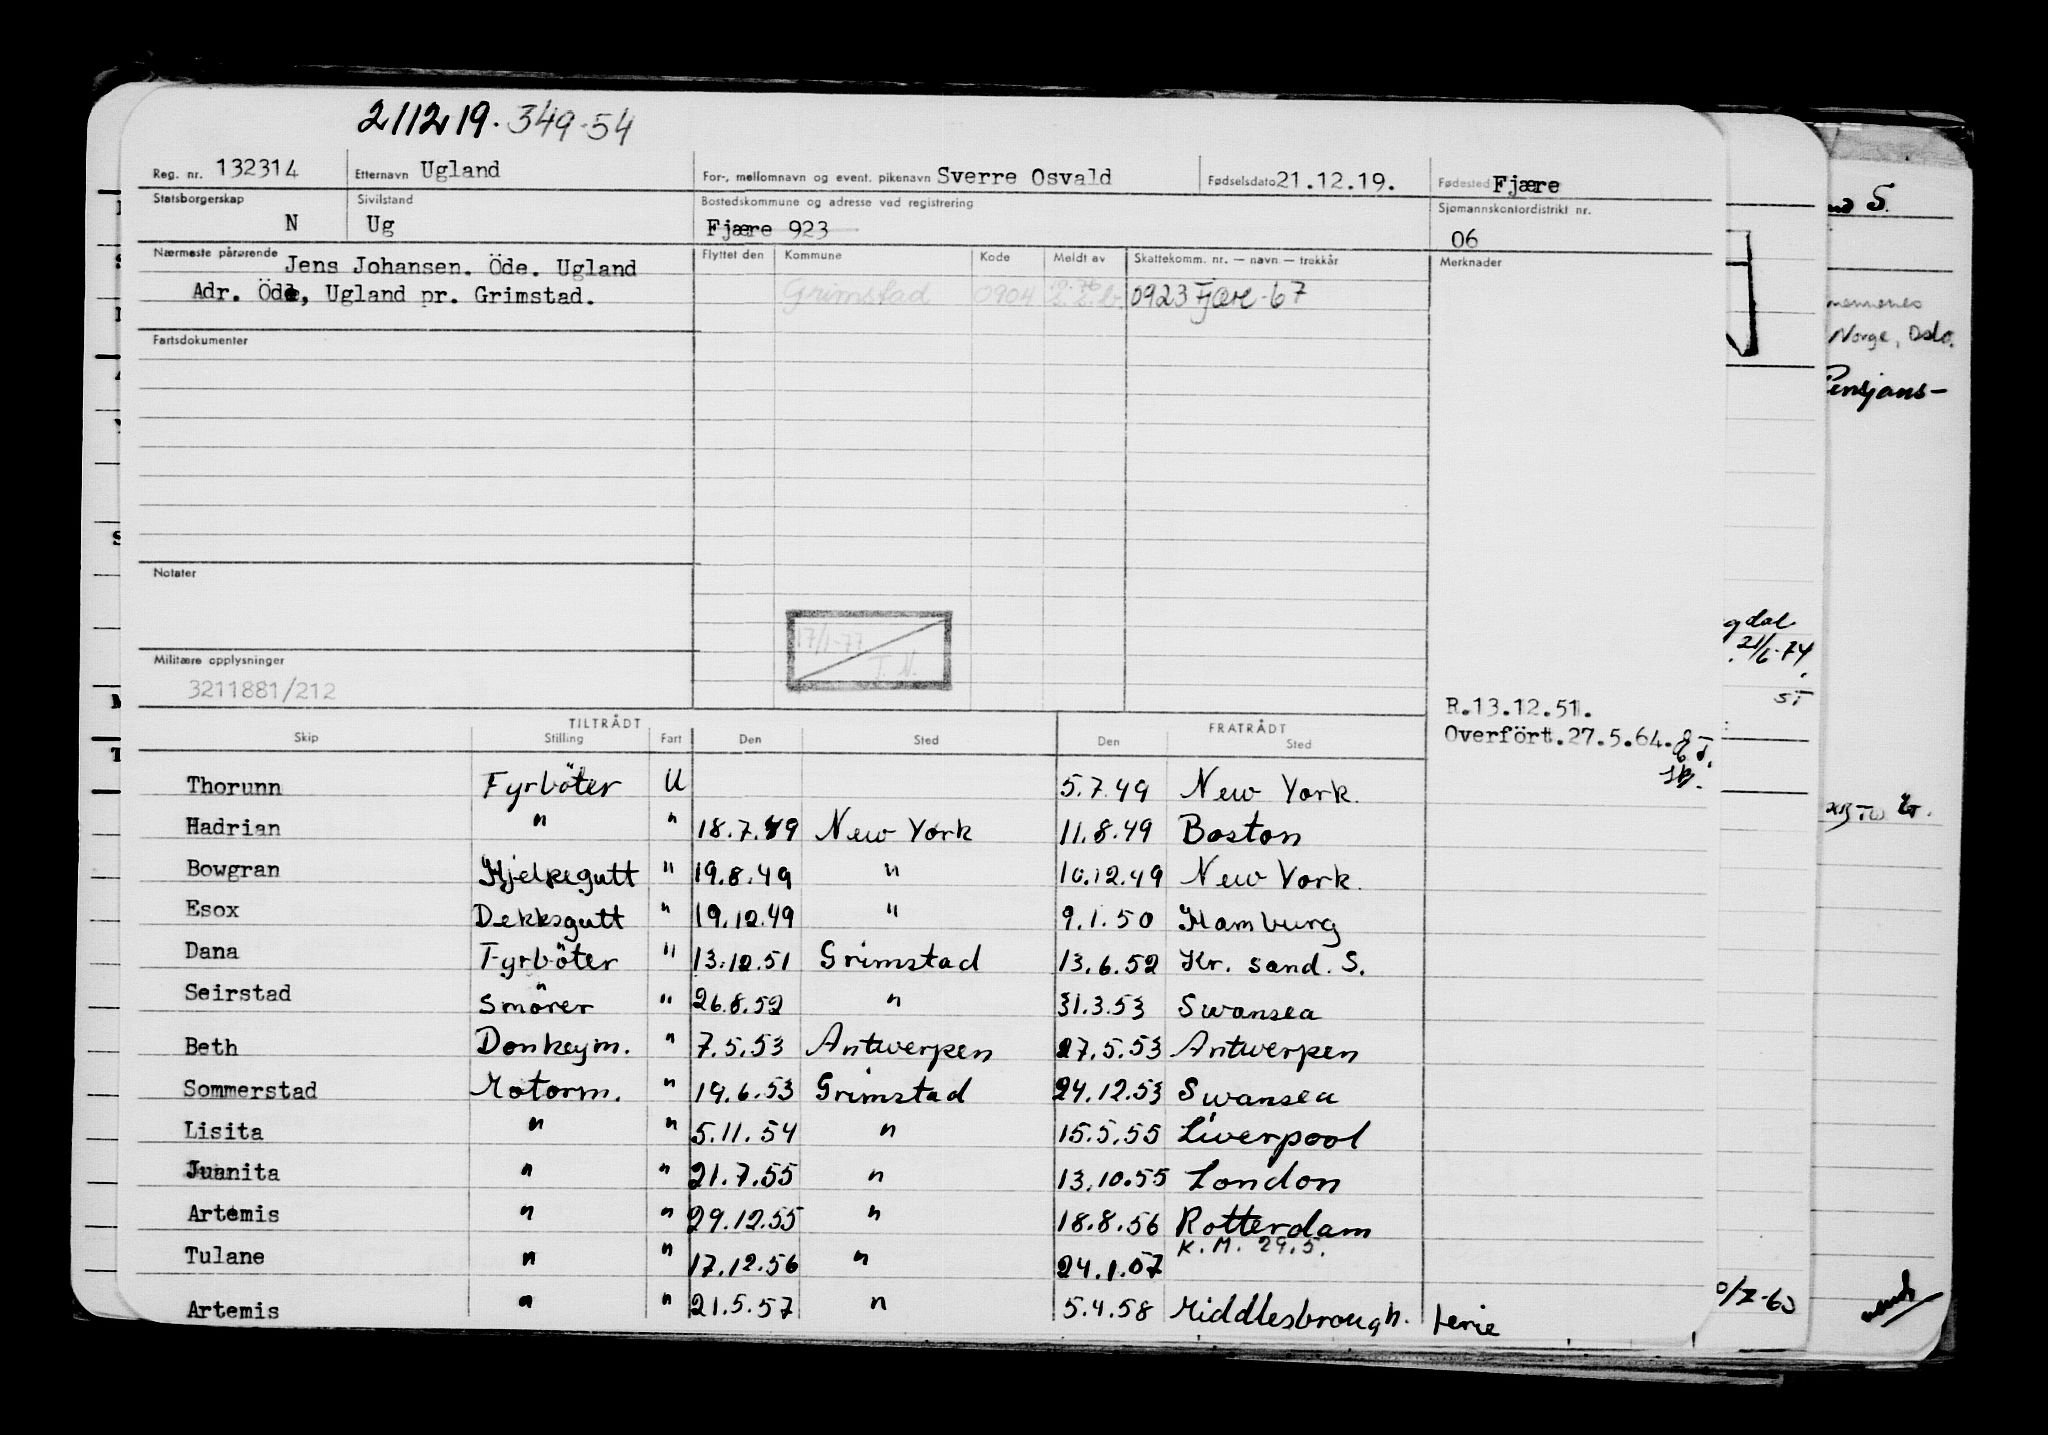 211219.349-54
Reg. nr. 132314 Etternavn Ugland For-, mellomnavn og event. pikenavn Sverre Osvald Fødselsdato 21.12.19. Fødested Fjære
Statsborgerskap N Sivilstand Ug Bostedskommune og adresse ved registrering Fjære 923 Sjømannskontordistrikt nr. 06
Nærmeste pårørende Jens Johansen. Öde. Ugland
Adr. Öde, Ugland pr. Grimstad.
Flyttet den Kommune Kode Meldt av Skattekomm. nr. — navn — trekkår Merknader
Grimstad 0904 0923 Fjære-67
Fartsdokumenter
Notater
17/1-77
T.N.
Militære opplysninger
3211881/212
R.13.12.51.
Overført.27.5.64.
TILTRÅDT FRATRÅDT
Skip Stilling Fart Den Sted Den Sted
Thorunn Fyrböter U 5.7.49 New York.
Hadrian " " 18.7.49 New York 11.8.49 Boston
Bowgran Hjelpegutt " 19.8.49 " 10.12.49 New York.
Esox Dekksgutt " 19.12.49 " 9.1.50 Hamburg
Dana Fyrböter " 13.12.51 Grimstad 13.6.52 Kr. sand. S.
Seirstad Smörer " 26.8.52 " 31.3.53 Swansea
Beth Donkeym. " 7.5.53 Antwerpen 27.5.53 Antwerpen
Sommerstad Motorm. " 19.6.53 Grimstad 24.12.53 Swansea
Lisita " " 5.11.54 " 15.5.55 Liverpool
Juanita " " 21.7.55 " 13.10.55 London
Artemis " " 29.12.55 " 18.8.56 Rotterdam
K.M. 29.5.
Tulane " " 17.12.56 " 24.1.57
Artemis " " 21.5.57 " 5.4.58 Middlesbrough. ferie
S.
Norge, Oslo.
Pensjons-
21/6-74
ST